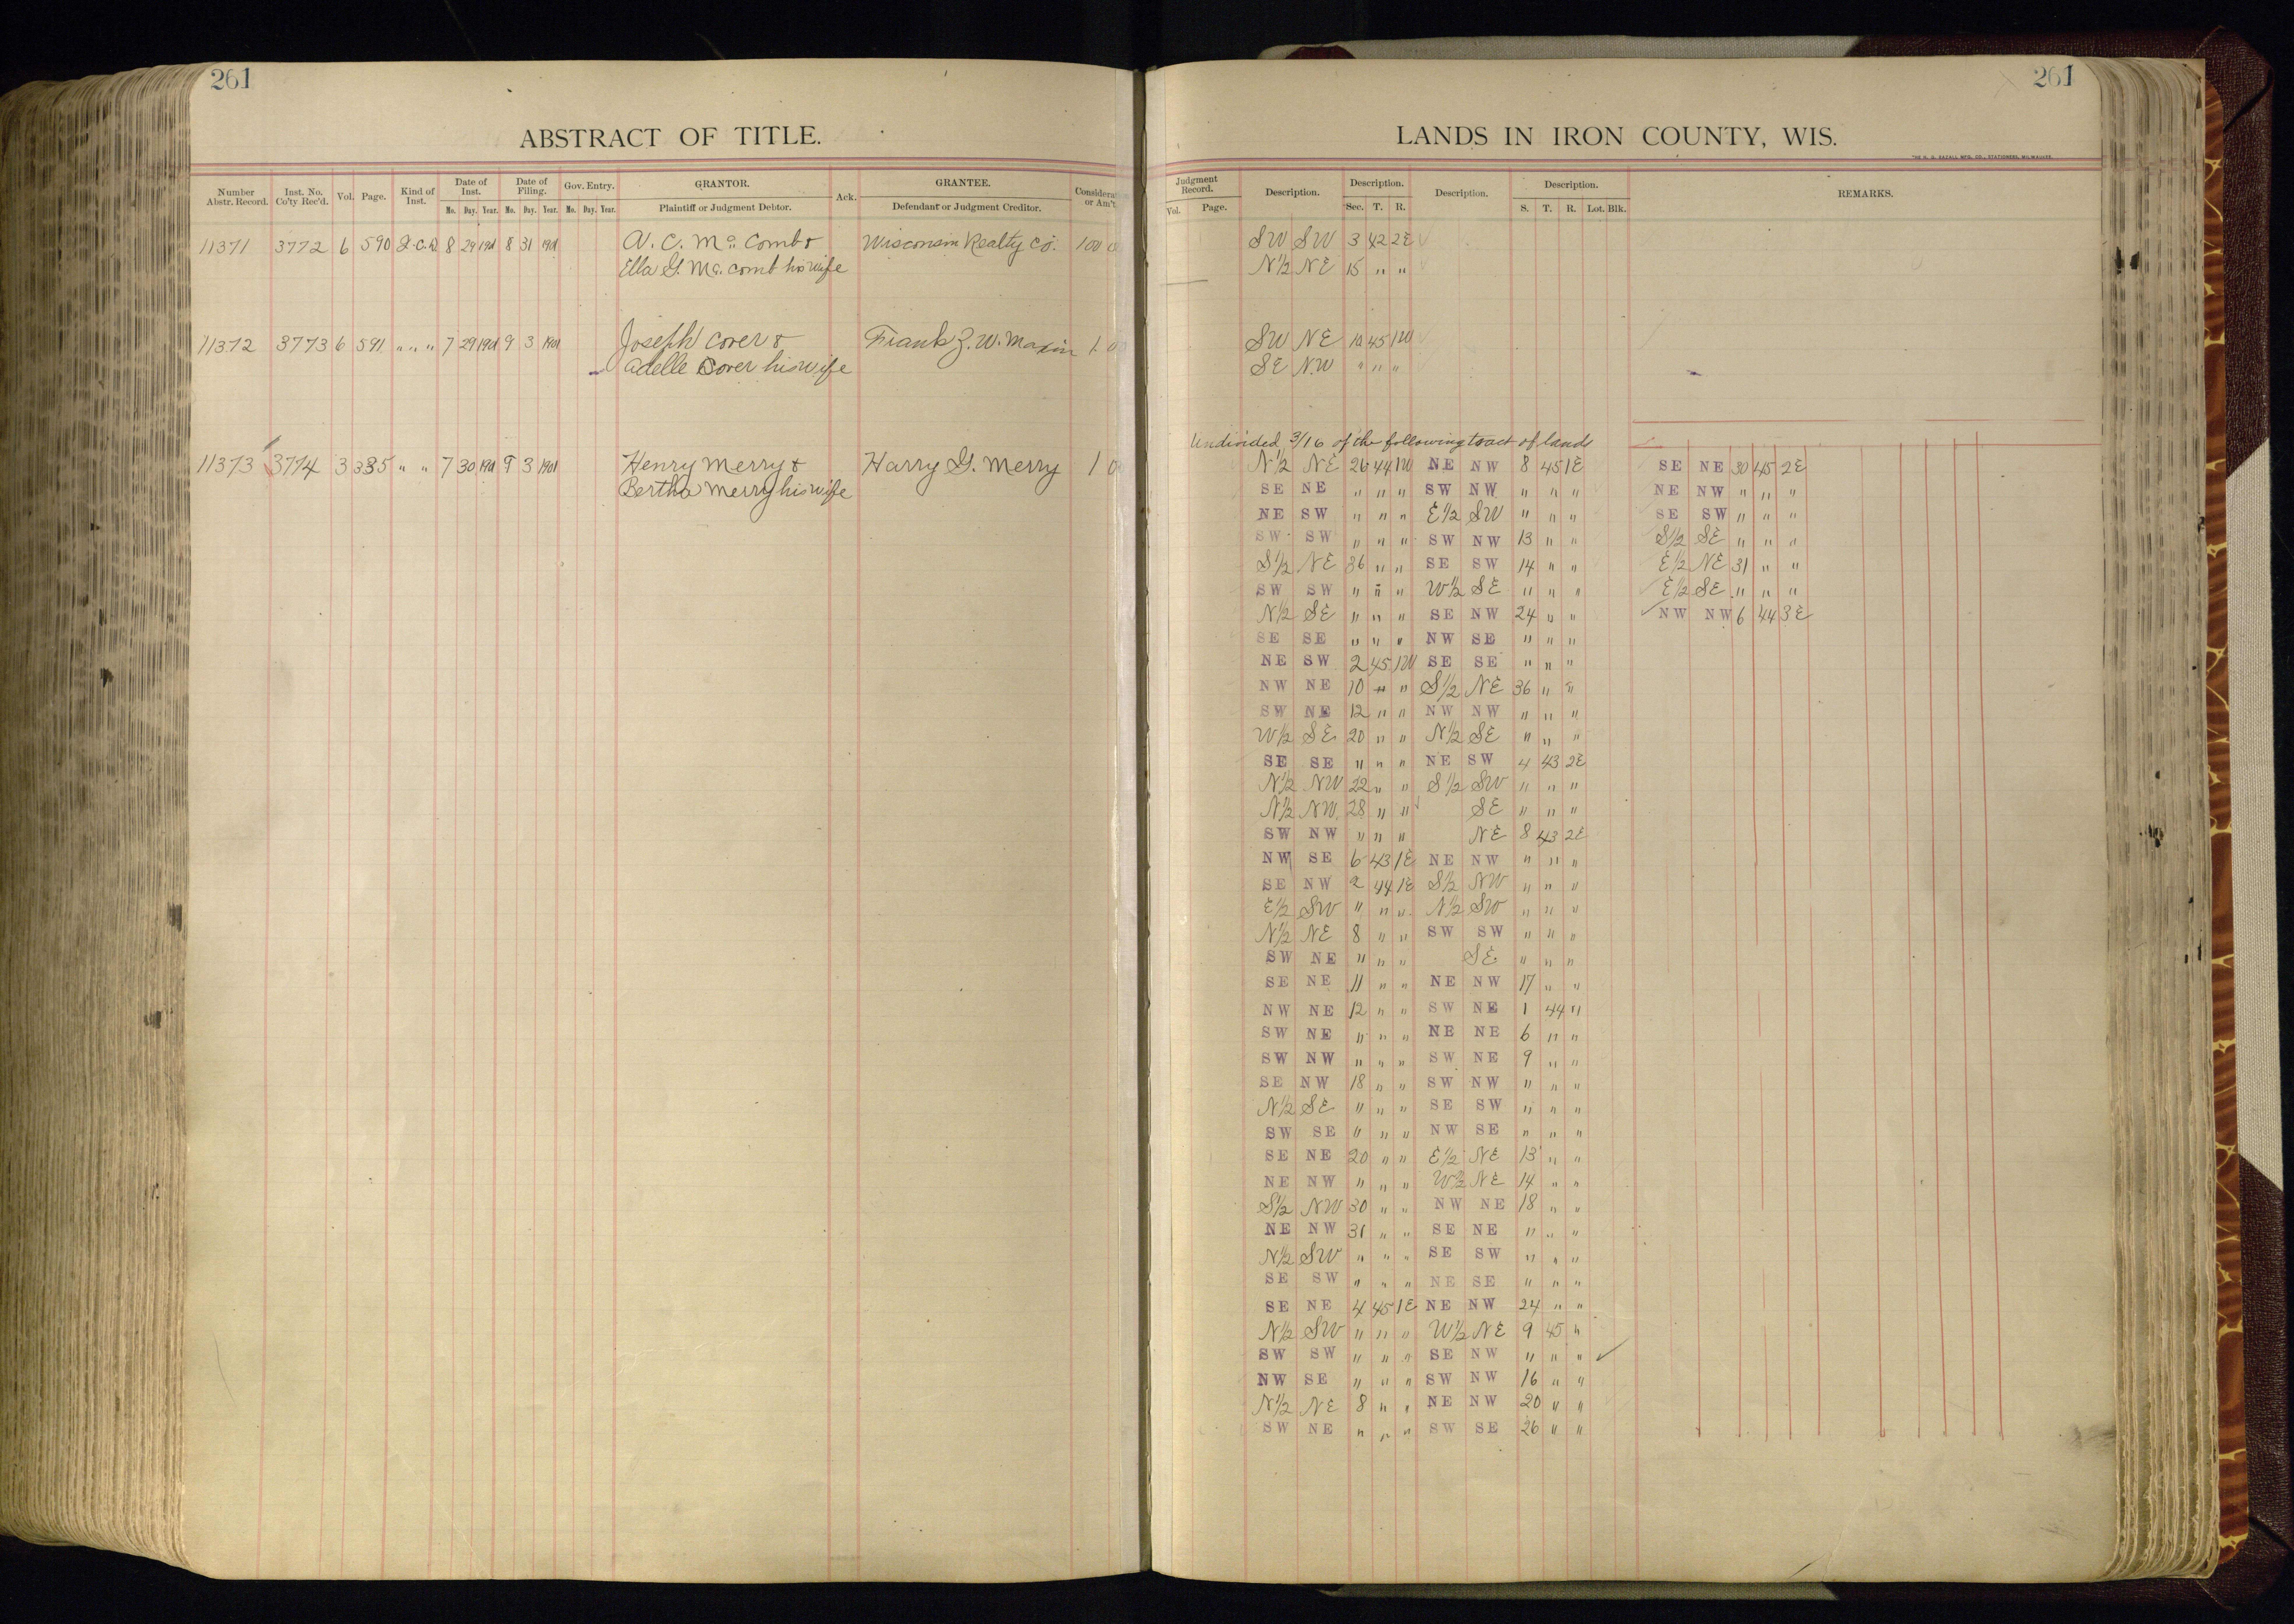 261
ABSTRACT OF TITLE.
Number Abstr. Record. Inst. No. Co'ty Rec'd. Vol. Page. Kind of Inst. Date of Inst. Mo. Day. Year. Date of Filing. Mo. Day. Year. Gov. Entry. Mo. Day. Year. GRANTOR. Plaintiff or Judgment Debtor. Ack. GRANTEE. Defendant or Judgment Creditor.
11371 3772 6 590 8 29 1901 8 31 1901 A. C. Mc Comb & Wisconsin Realty Co. 100
Ella G. Mc. comb his wife
11372 3773 6 591 " " " 7 29 1901 9 3 1901 Joseph Cover & Frank Z. W. Maxin 1
Adelle Cover his wife
11373 3774 3 335 " " 7 30 1901 9 3 1901 Henry Merry & Harry G. Merry 1
Bertha Merry his wife
261
LANDS IN IRON COUNTY, WIS.
Judgment Record. Vol. Page. Description. Description. Sec. T. R. Description. Description. S. T. R. Lot. Blk. REMARKS.
SW SW 3 42 2E
N½ NE 15 " "
SW NE 10 45 1W
SE NW " " "
Undivided 3/16 of the following tract of lands
N½ NE 26 44 1W NE NW 8 45 1E SE NE 30 45 2E
SE NE " " " SW NW " " " NE NW " " "
NE SW " " " E½ SW " " " SE SW " " "
SW SW " " " SW NW 13 " " S½ SE " " "
S½ NE 36 " " SE SW 14 " " E½ NE 31 " "
SW SW " " " W½ SE " " " E½ SE " " "
N½ SE " " " SE NW 24 " " NW NW 6 44 3E
SE SE " " " NW SE " " "
NE SW 2 45 1W SE SE " " "
NW NE 10 " " S½ NE 36 " "
SW NE 12 " " NW NW " " "
W½ SE 20 " " N½ SE " " "
SE SE " " " NE SW 4 43 2E
N½ NW 22 " " S½ SW " " "
N½ NW 28 " " SE " " "
SW NW " " " NE 8 43 2E
NW SE 6 43 1E NE NW " " "
SE NW 2 44 1E S½ NW " " "
E½ SW " " " N½ SW " " "
N½ NE 8 " " SW SW " " "
SW NE " " " SE " " "
SE NE 11 " " NE NW 17 " "
NW NE 12 " " SW NE 1 44 "
SW NE " " " NE NE 6 " "
SW NW " " " SW NE 9 " "
SE NW 18 " " SW NW " " "
N½ SE " " " SE SW " " "
SW SE " " " NW SE " " "
SE NE 20 " " E½ NE 13 " "
NE NW " " " W½ NE 14 " "
S½ NW 30 " " NW NE 18 " "
NE NW 31 " " SE NE " " "
N½ SW " " " SE SW " " "
SE SW " " " NE SE " " "
SE NE 4 45 1E NE NW 24 " "
N½ SW " " " W½ NE 9 45 "
SW SW " " " SE NW " " "
NW SE " " " SW NW 16 " "
N½ NE 8 " " NE NW 20 " "
SW NE " " " SW SE 26 " "